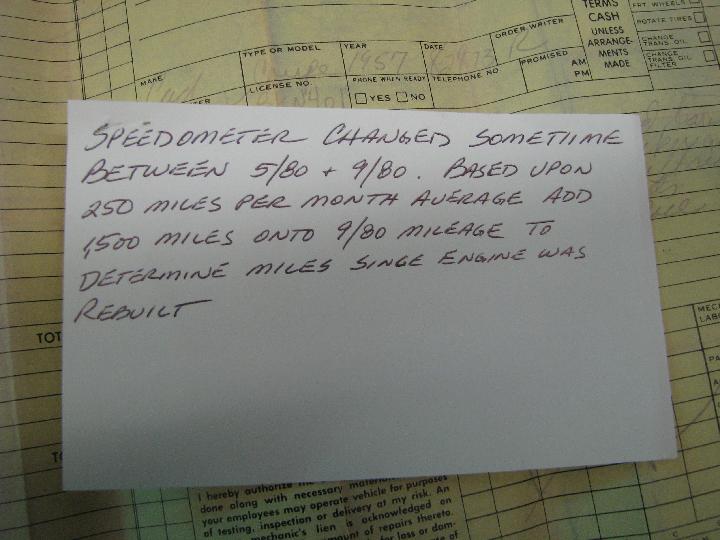 TERMS
CASH
UNLESS
ARRANGE-
MENTS
MADE
FRT. WHEELS
ROTATE TIRES
CHANGE
TRANS. OIL
CHANGE
TRANS. OIL
FILTER
ORDER WRITER
MAKE
TYPE OR MODEL
YEAR
DATE
1957
LICENSE NO.
PHONE WHEN READY
YES NO
TELEPHONE NO.
PROMISED
AM
PM
SPEEDOMETER CHANGED SOMETIME
BETWEEN 5/80 + 9/80. BASED UPON
250 MILES PER MONTH AVERAGE ADD
1,500 MILES ONTO 9/80 MILEAGE TO
DETERMINE MILES SINCE ENGINE WAS
REBUILT
I hereby authorize the
done along with necessary
your employees may operate vehicle for purposes
of testing, inspection or delivery at my risk. An
mechanic's lien is acknowledged on
amount of repairs thereto.
for loss or dam-